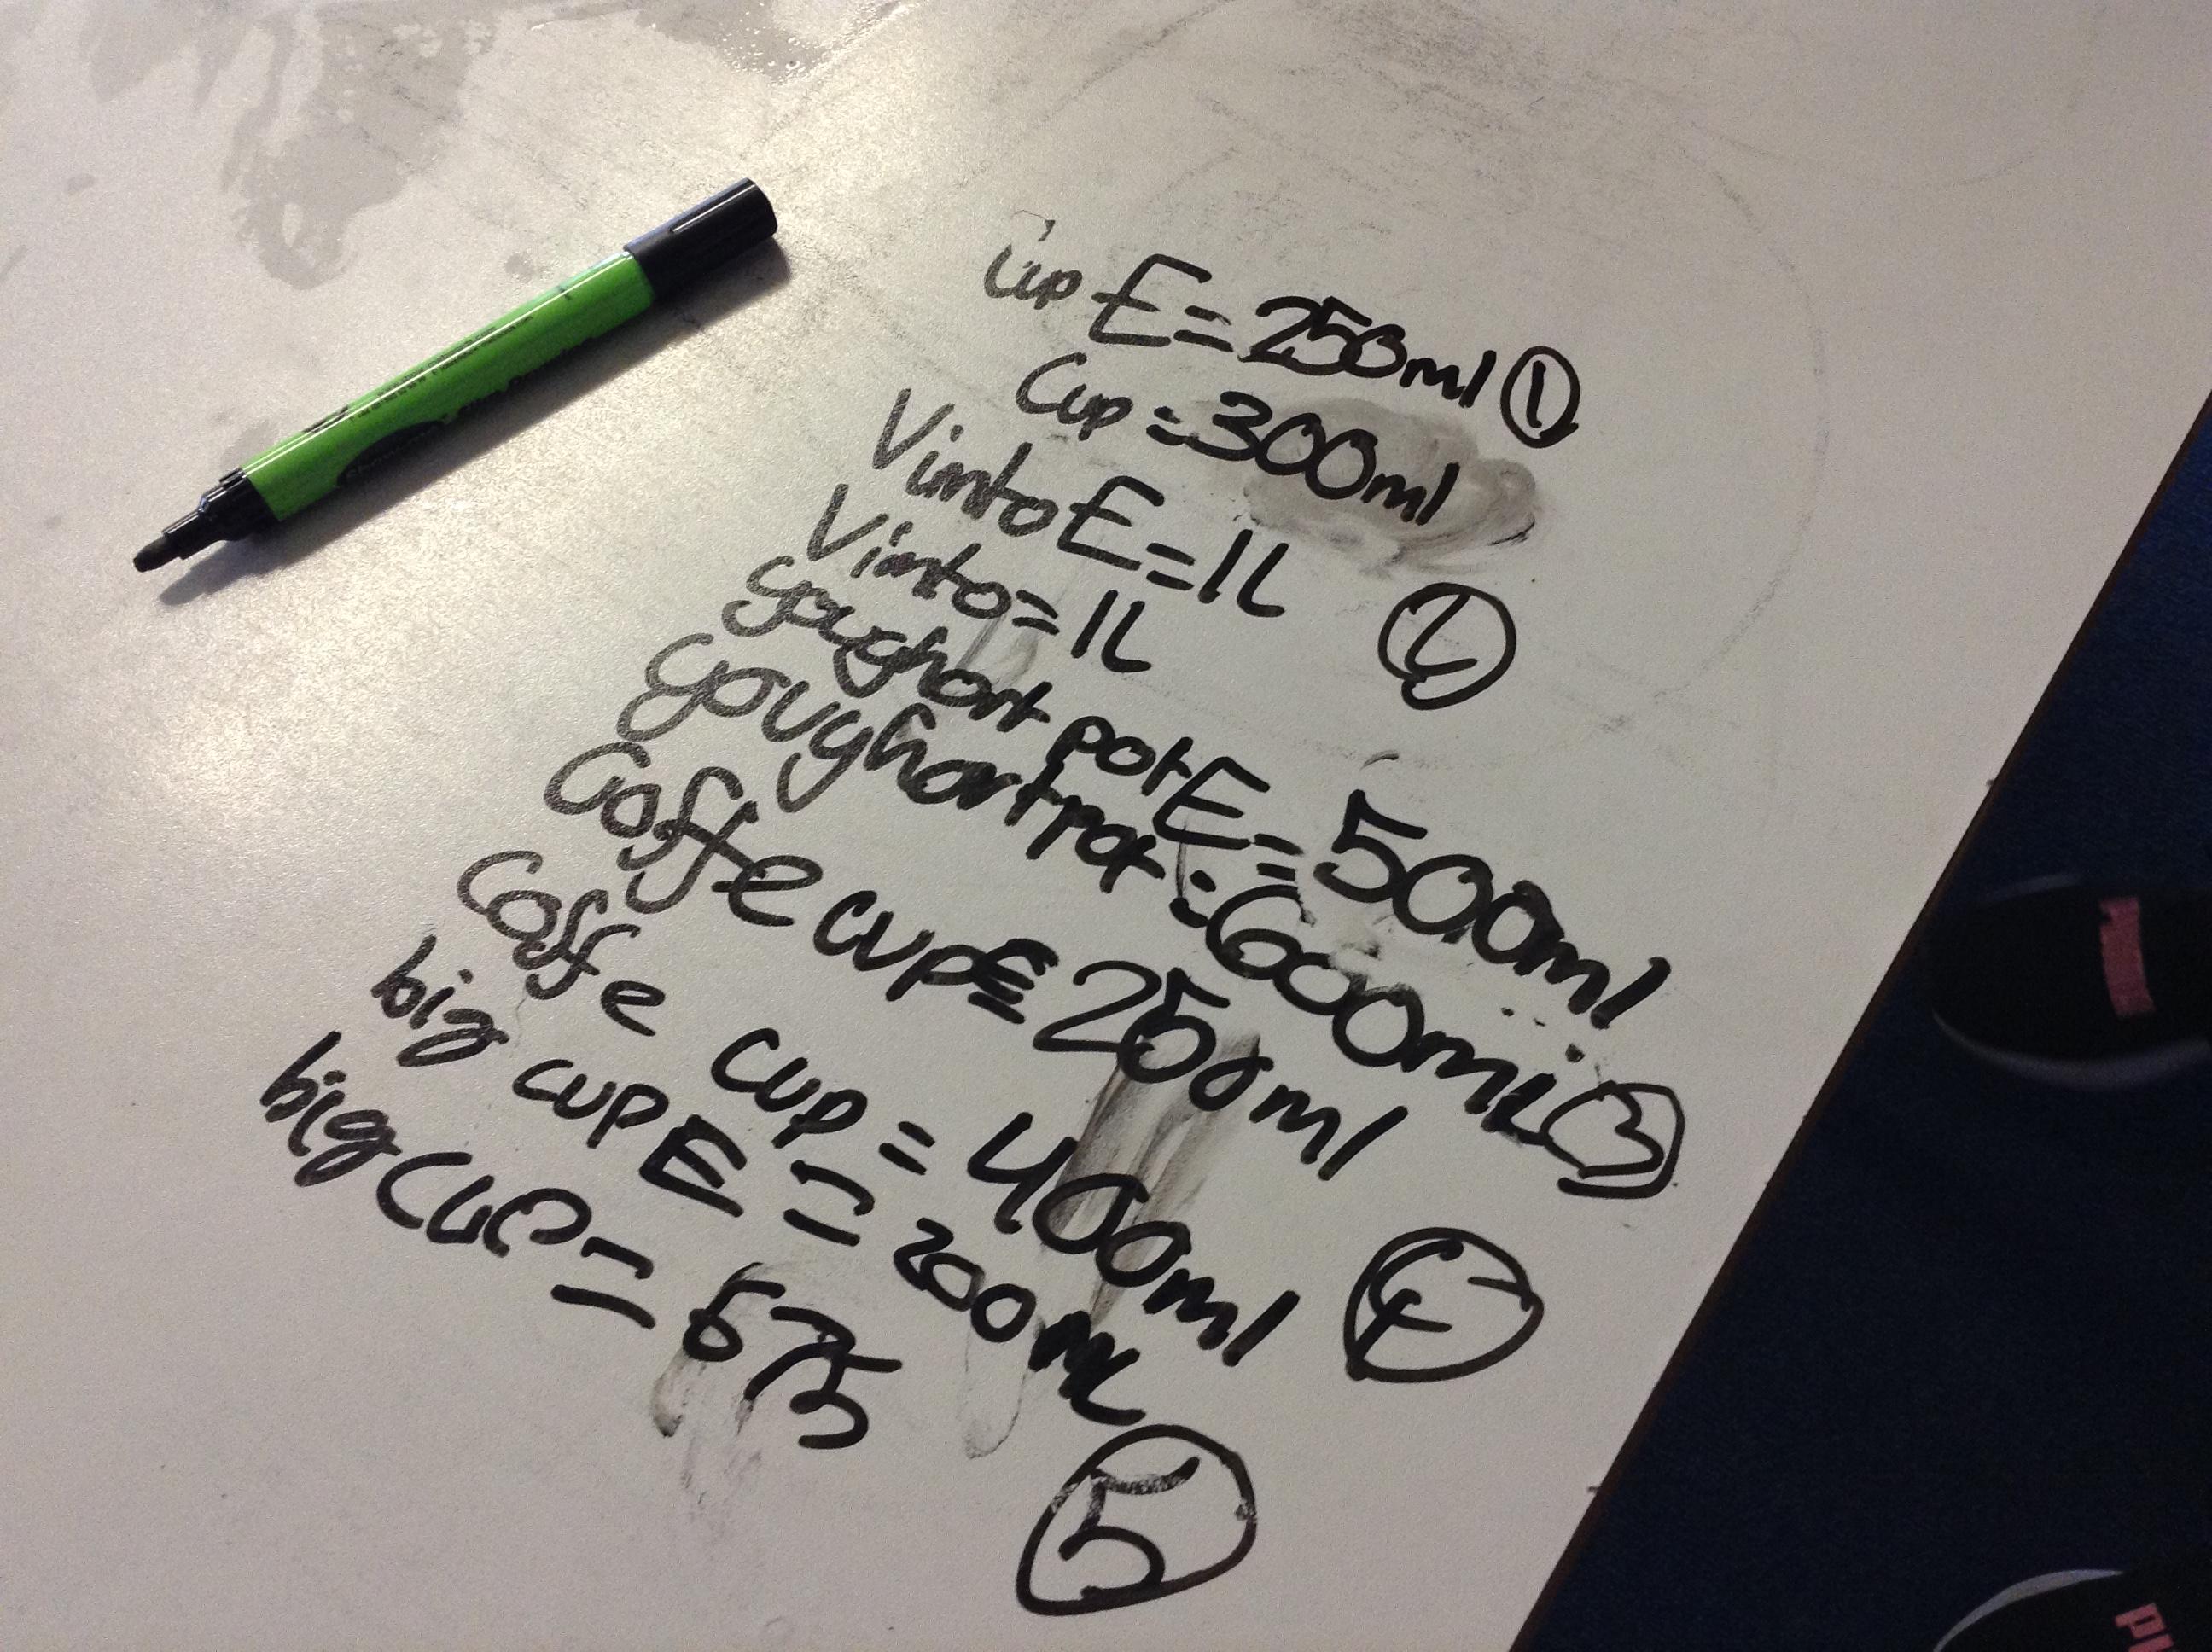 Cup E = 250ml ①
Cup = 300ml
Vimto E = 1L
Vimto = 1L
youghort pot E = 500ml
youghort pot = 600ml ③
Coffe cup E = 250ml
Coffe cup = 400ml ④
big cup E = 200ml
big cup = 575
⑤